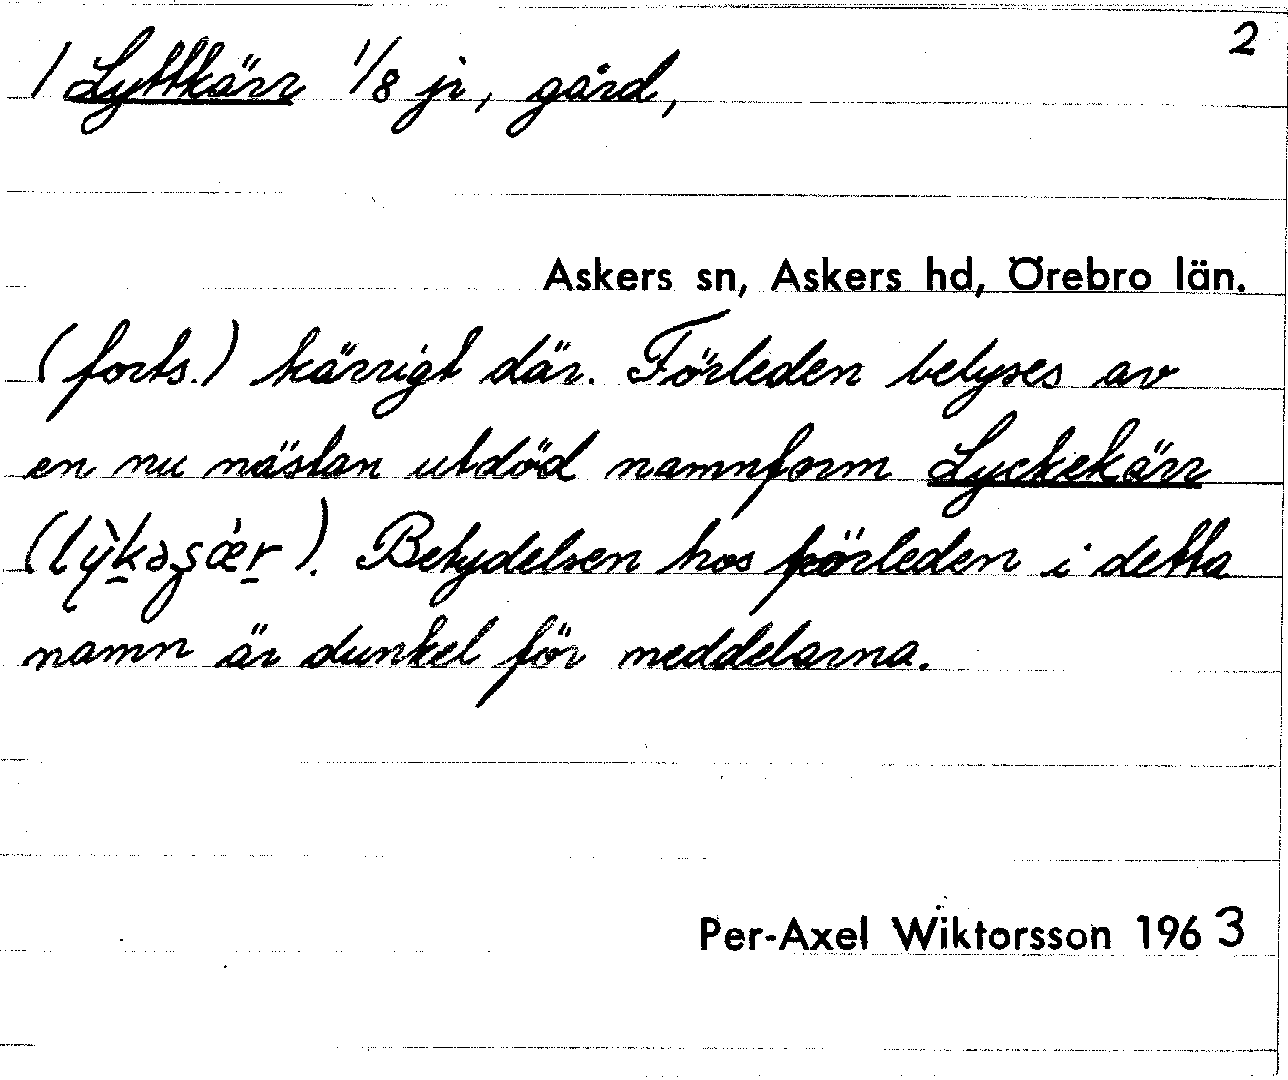 2
/ Lyttkärr 1/8 jr, gård,
Askers sn, Askers hd, Örebro län.
(forts.) kärrigt där. Förleden belyses av
en nu nästan utdöd namnform Lyckekärr
( ). Betydelsen hos förleden i detta
namn är dunkel för meddelarna.
Per-Axel Wiktorsson 1963